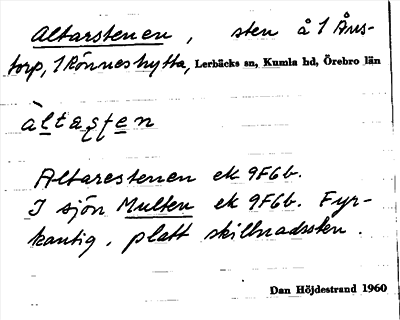 Altarstenen, sten å 1 Åns-
torp, 1 Rönneshytta, Lerbäcks sn, Kumla hd, Örebro län
àltaʂten
Altarestenen ek 9F6b.
I sjön Multen ek 9F6b. Fyr-
kantig, platt skillnadssten.
Dan Höjdestrand 1960